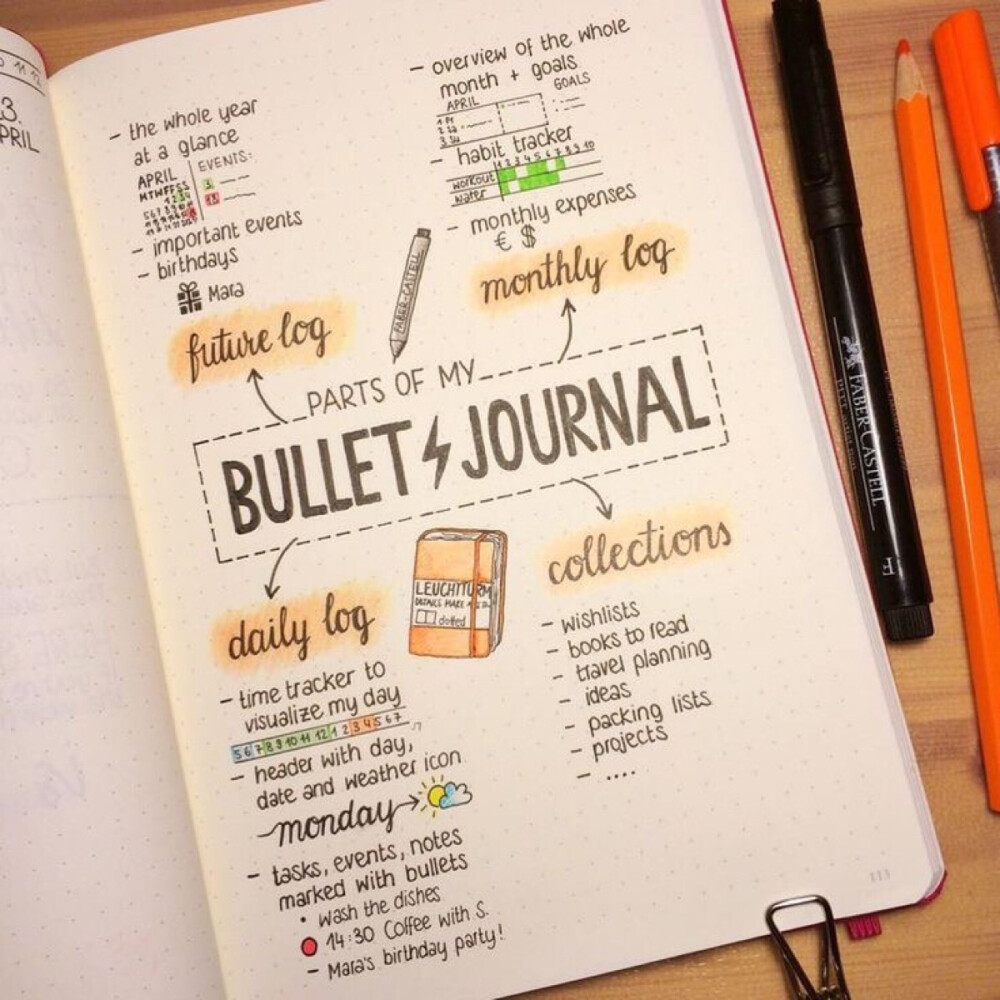 13.
APRIL
- the whole year
at a glance
APRIL
MTWTFSS
EVENTS:
- important events
- birthdays
Mara
future log
- overview of the whole
month + goals
APRIL
GOALS
- habit tracker
1 2 3 4 5 6 7 8 9 10
workout
water
- monthly expenses
€ $
monthly log
FABER-CASTELL
PARTS OF MY
BULLET JOURNAL
daily log
- time tracker to
visualize my day
5 6 7 8 9 10 11 12 1 2 3 4 5 6 7
- header with day,
date and weather icon
monday
- tasks, events, notes
marked with bullets
• wash the dishes
14:30 Coffee with S.
- Mara's birthday party!
LEUCHTTURM
dotted
collections
- wishlists
- books to read
- travel planning
- ideas
- packing lists
- projects
- ....
113
FABER-CASTELL
F